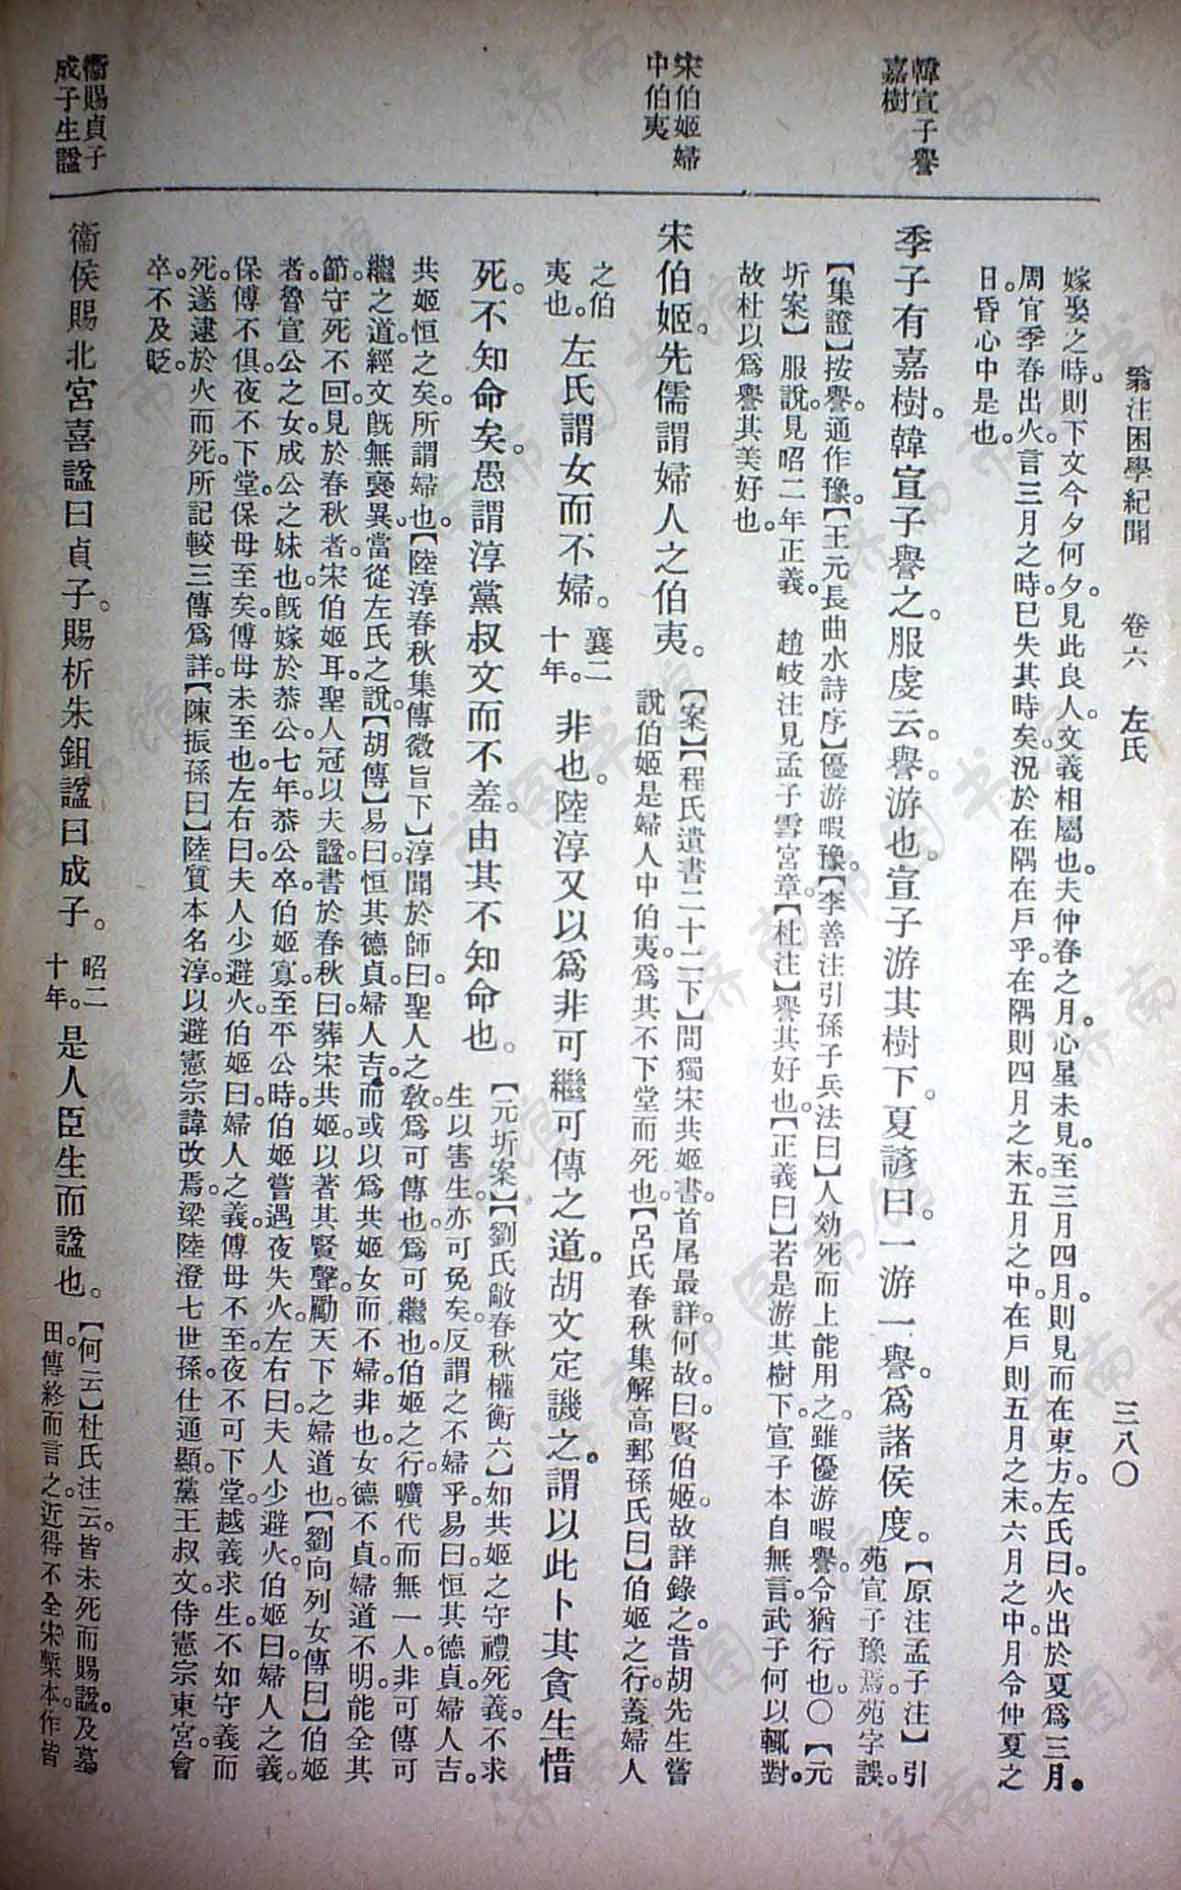 翁注困學紀聞　卷六　左氏　三八〇
韓宣子譽
嘉樹
宋伯姬婦
中伯夷
衞賜貞子
成子生諡
嫁娶之時。則下文今夕何夕。見此良人。文義相屬也。夫仲春之月。心星未見。至三月四月。則見而在東方。左氏曰。火出於夏爲三月。
周官季春出火。言三月之時。已失其時矣。況於在隅在戶乎。在隅則四月之末。五月之中。在戶則五月之末。六月之中。月令仲夏之
日。昏心中是也。
季子有嘉樹。韓宣子譽之。服虔云。譽。游也。宣子游其樹下。夏諺曰。一游一譽。爲諸侯度。
【原注孟子注】引
苑宣子豫焉。苑字誤。
【集證】按譽。通作豫。【王元長曲水詩序】優游暇豫。【李善注引孫子兵法曰】人効死而上能用之。雖優游暇譽。令猶行也。〇【元
圻案】服說。見昭二年正義。　趙岐注見孟子雪宮章。【杜注】譽其好也。【正義曰】若是游其樹下。宣子本自無言。武子何以輒對。
故杜以爲譽其美好也。
宋伯姬。先儒謂婦人之伯夷。
【案】【程氏遺書二十二下】問獨宋共姬書。首尾最詳。何故。曰。賢伯姬。故詳錄之。昔胡先生嘗
說伯姬是婦人中伯夷。爲其不下堂而死也。【呂氏春秋集解高郵孫氏曰】伯姬之行。蓋婦人
之伯
夷也。
左氏謂女而不婦。
襄二
十年。
非也。陸淳又以爲非可繼可傳之道。胡文定譏之。謂以此卜其貪生惜
死。不知命矣。愚謂淳黨叔文而不羞。由其不知命也。
【元圻案】【劉氏敞春秋權衡六】如共姬之守禮死義。不求
生以害生。亦可免矣。反謂之不婦乎。易曰。恒其德貞。婦人吉。
共姬恒之矣。所謂婦也。【陸淳春秋集傳微旨下】淳聞於師曰。聖人之敎。爲可傳也。爲可繼也。伯姬之行。曠代而無一人。非可傳可
繼之道。經文旣無襃異。當從左氏之說。【胡傳】易曰。恒其德貞。婦人吉。而或以爲共姬女而不婦。非也。女德不貞。婦道不明。能全其
節。守死不回。見於春秋者。宋伯姬耳。聖人冠以夫諡。書於春秋。曰葬宋共姬。以著其賢聲。勵天下之婦道也。【劉向列女傳曰】伯姬
者。魯宣公之女。成公之妹也。旣嫁於恭公。七年。恭公卒。伯姬寡。至平公時。伯姬嘗遇夜失火。左右曰。夫人少避火。伯姬曰。婦人之義。
保傅不俱。夜不下堂。保母至矣。傅母未至也。左右曰。夫人少避火。伯姬曰。婦人之義。傅母不至。夜不可下堂。越義求生。不如守義而
死。遂逮於火而死。所記較三傳爲詳。【陳振孫曰】陸質本名淳。以避憲宗諱改焉。梁陸澄七世孫。仕通顯。黨王叔文。侍憲宗東宮。會
卒。不及貶。
衞侯賜北宮喜諡曰貞子。賜析朱鉏諡曰成子。
昭二
十年。
是人臣生而諡也。
【何云】杜氏注云。皆未死而賜諡。及墓
田。傳終而言之。近得不全宋槧本。作皆